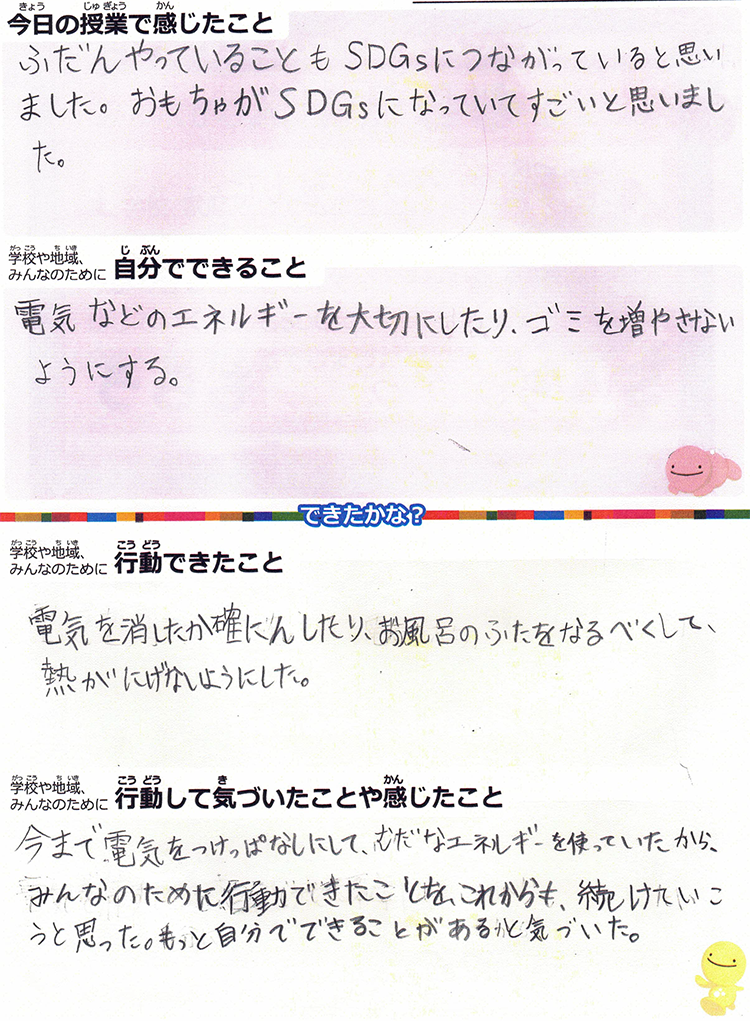 きょう じゅぎょう かん
今日の授業で感じたこと
ふだんやっていることもSDGsにつながっていると思い
ました。おもちゃがSDGsになっていてすごいと思いまし
た。
がっこう ちいき
学校や地域、
みんなのために
じぶん
自分でできること
電気などのエネルギーを大切にしたり、ゴミを増やさない
ようにする。
できたかな?
がっこう ちいき
学校や地域、
みんなのために
こうどう
行動できたこと
電気を消したか確にんしたり、お風呂のふたをなるべくして、
熱がにげないようにした。
がっこう ちいき
学校や地域、
みんなのために
こうどう き かん
行動して気づいたことや感じたこと
今まで電気をつけっぱなしにして、むだなエネルギーを使っていたから、
みんなのために行動できたことを、これからも、続けていこ
うと思った。もっと自分でできることがあると気づいた。